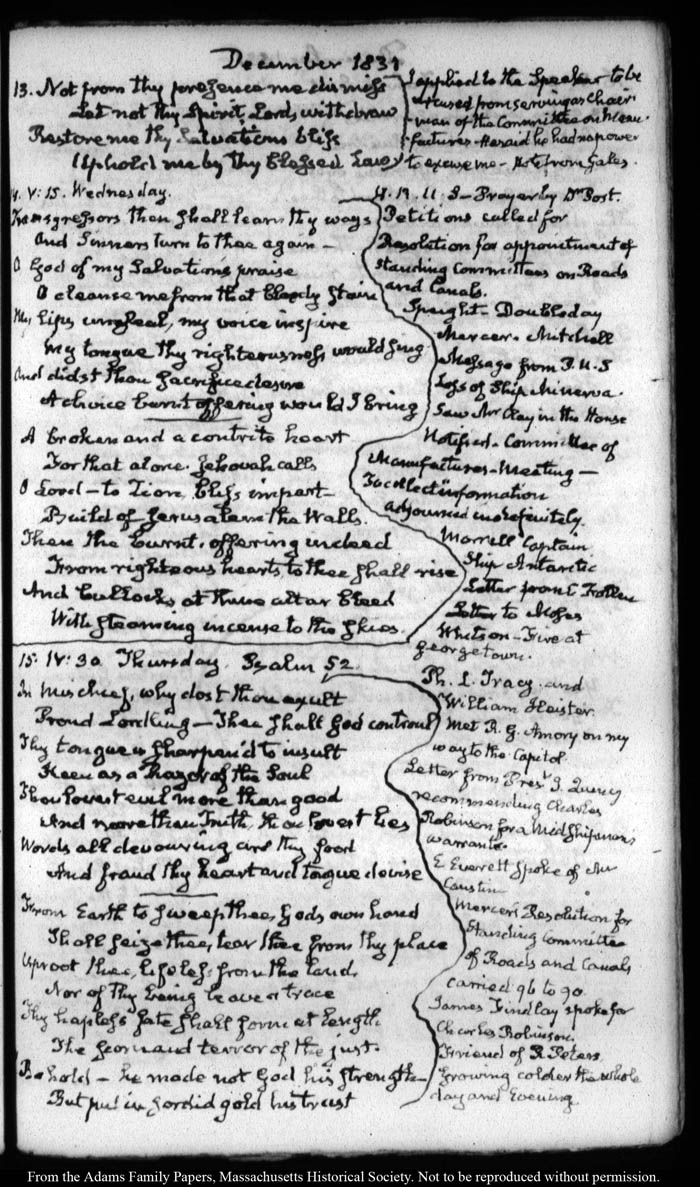 December 1831
13. Not from thy presence me dismiss
Let not thy Spirit, Lord, withdraw
Restore me thy Salvations bliss
Uphold me by thy blessed Law
I applied to the Speaker to be
excused from serving as Chair-
man of the Committee on Manu-
factures. He said he had no power
to excuse me. Note from Gales.
14. V: 15. Wednesday.
Transgressors then shall learn thy ways
And Sinners turn to thee again —
O God of my Salvation's praise
O cleanse me from that bloody stain
My lips unseal, my voice inspire
My tongue thy righteousness would sing
And didst thou sacrifice desire
A choice burnt offering would I bring
A broken and a contrite heart
For that alone Jehovah calls
O Lord — to Zion, bliss impart
Build of Jerusalem the Walls.
Then the burnt-offering indeed
From righteous hearts to thee shall rise
And bullocks at thine altar bleed
With steaming incense to the skies.
H. R. U.S. — Prayer by Dr. Post.
Petitions called for
Resolution for appointment of
standing Committees on Roads
and Canals.
Speight. Doubleday
Mercer. Mitchell
Message from P. U.S
Loss of Ship Minerva.
Saw Mr Clay in the House
Notified. Committee of
Manufactures. Meeting —
To collect information
adjourned indefinitely.
Morrell Captain
Ship Antarctic
Letter from C Follen
Letter to Moses
Whitson — Fire at
Georgetown.
15. IV: 30 Thursday. Psalm 52.
In mischief, why dost thou exult
Proud Lordling — Thee shall God controul
Thy tongue is sharpen'd to insult
Keen as a Razor of the Soul
Thou lovest evil more than good
And more than Truth, thou lovest lies
Words all devouring are thy food
And fraud thy heart and tongue devise
From Earth to sweep thee, Gods own hand
Shall seize thee, tear thee from thy place
Uproot thee, lifeless from the land
Nor of thy being leave a trace
Thy hapless fate shall form at length
The scorn and terror of the just.
Behold — he made not God his strength
But put in sordid gold his trust
Ph. L. Tracy and
William Heister.
Met R. G. Amory on my
way to the Capitol.
Letter from Prest J. Quincy
recommending Charles
Robinson for a Midshipman's
warrant.
E Everett spoke of Mr
Caustin
Mercer's Resolution for
Standing Committee
of Roads and Canals
carried 96 to 90.
James Findlay spoke for
Charles Robinson.
Friend of R Peters
Growing colder the whole
day and Evening
From the Adams Family Papers, Massachusetts Historical Society. Not to be reproduced without permission.